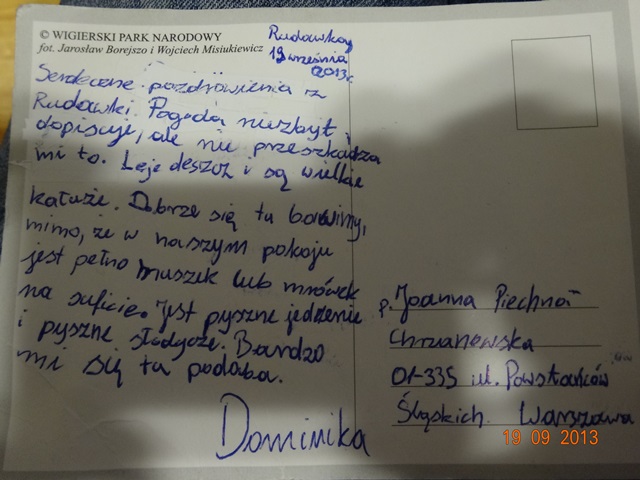 © WIGIERSKI PARK NARODOWY
fot. Jarosław Borejszo i Wojciech Misiukiewicz
Rudawka,
19 września
2013r.
Serdeczne pozdrowienia z
Rudawki. Pogoda niezbyt
dopisuje, ale nie przeszkadza
mi to. Leje deszcz i są wielkie
kałuże. Dobrze się tu bawimy,
mimo, że w naszym pokoju
jest pełno muszek lub mrówek
na suficie. Jest pyszne jedzenie
i pyszne słodycze. Bardzo
mi się tu podoba.
Dominika
p. Joanna Piechna-
Chrzanowska
01-335 ul. Powstańców
Śląskich Warszawa
19 09 2013